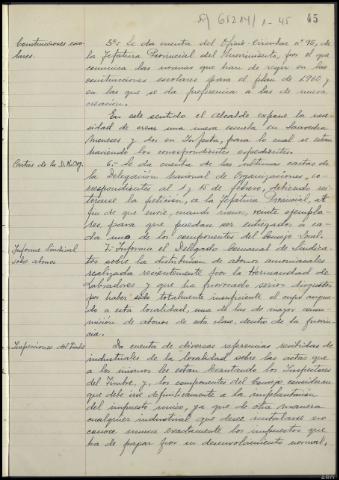 61214/1-45
45
Construcciones esco-
lares.
5º: Se da cuenta del Oficio-Circular nº 15, de
la Jefatura Provincial del Movimiento, por el que
comunica las normas que han de regir en las
construcciones escolares para el plan de 1960 y
en las que se da preferencia a las de nueva
creación.
En este sentido el Alcalde expone la nece-
sidad de crear una nueva escuela en Saavedra
Meneses y dos en Infesta, para lo cual se están
haciendo los correspondientes expedientes.
Cartas de la D.N.Org.
6: Se da cuenta de las últimas cartas de
la Delegación Nacional de Organizaciones, co-
rrespondientes al 1 y 15 de febrero, debiendo
la petición, a la Jefatura Provincial, al
fin de que envíe, cuando menos, veinte ejempla-
res, para que puedan ser entregados a ca-
da uno de los componentes del Consejo Local.
Informe Sindical
sobre abonos
7: Informa el Delegado Comarcal de Sindica-
tos sobre la distribución de abonos amoniacales
realizada recientemente por la Hermandad de
Labradores y que ha provocado serios disgustos
por haber sido totalmente insuficiente el cupo asigna-
do a esta localidad, una de las de mayor consu-
mición de abonos de esta clase, dentro de la provin-
cia.
Inspecciones del Timbre
Da cuenta de diversas referencias recibidas de
industriales de la localidad sobre las actas que
a los mismos les están levantando los Inspectores
del Timbre, y, los componentes del Consejo consideran
que debe irse definitivamente a la implantación
del impuesto único, ya que de otra manera
cualquier industrial que desee instalarse no
conoce nunca exactamente los impuestos que
ha de pagar por su desenvolvimiento normal,